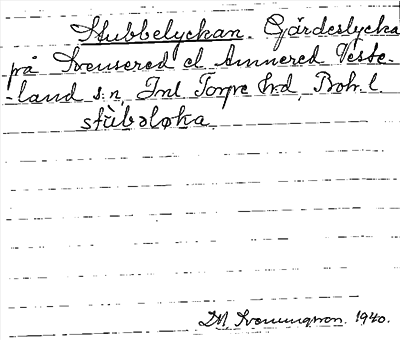 Stubbelyckan. Gärdeslycka
på Svensered el Amnered Veste-
-land s:n, Inl Torpe h:d, Boh. l.
stùbəløka.
1940.